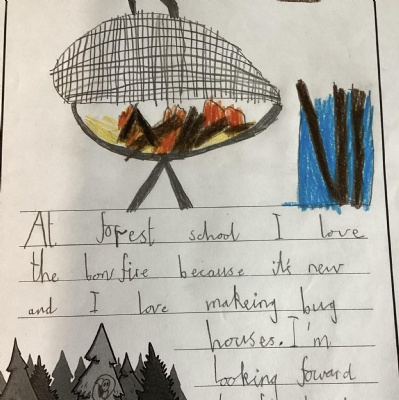 At forest school I love
the bonfire because it's new
and I love makeing bug
houses. I'm
looking foward